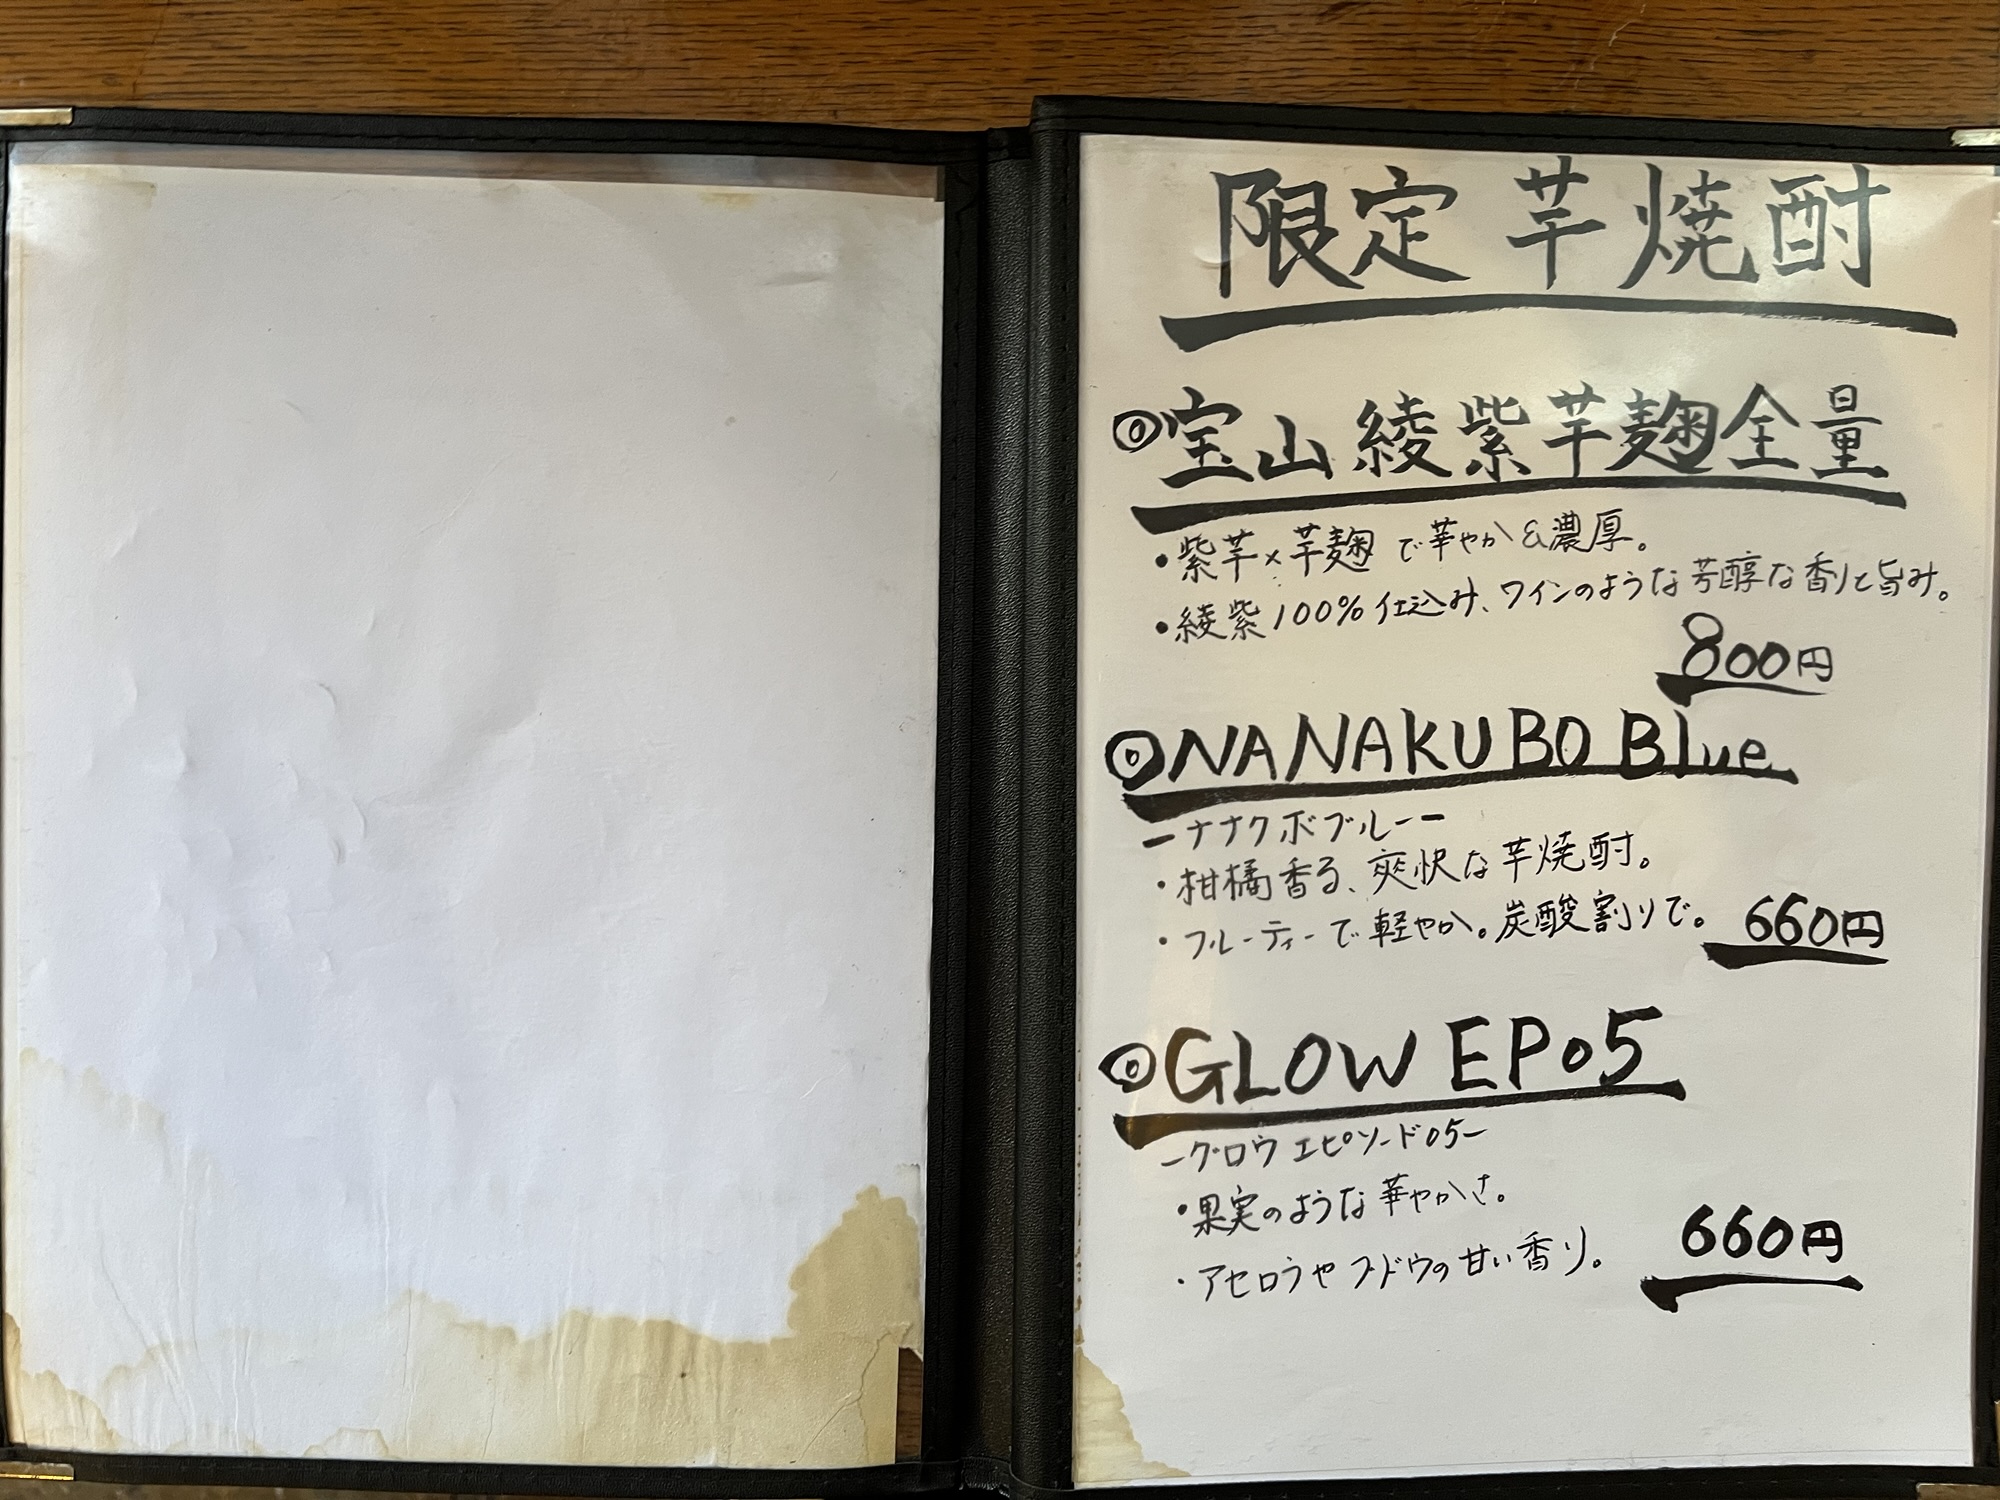 限定 芋焼酎
◎宝山 綾紫芋麹全量
・紫芋×芋麹 で華やか&濃厚。
・綾紫100%仕込み、ワインのような芳醇な香りと旨み。
800円
◎NANAKUBO Blue
ーナナクボブルーー
・柑橘香る、爽快な芋焼酎。
・フルーティーで軽やか。炭酸割りで。 660円
◎GLOW EP05
ーグロウ エピソード05ー
・果実のような華やかさ。
・アセロラやブドウの甘い香り。 660円